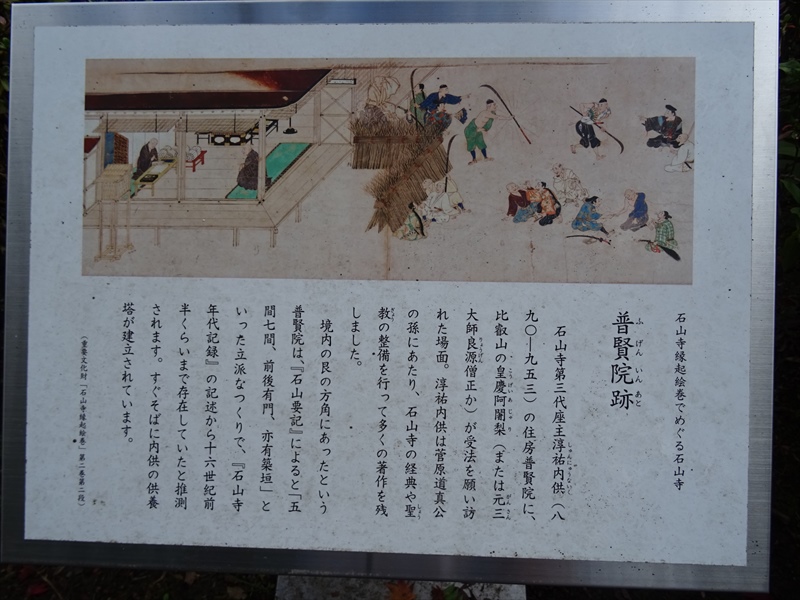 石山寺縁起絵巻でめぐる石山寺
普賢院跡
ふげんいんあと
石山寺第三代座主淳祐内供(八
九〇―九五三)の住房普賢院に、
比叡山の皇慶阿闍梨(または元三
大師良源僧正か)が受法を願い訪
れた場面。淳祐内供は菅原道真公
の孫にあたり、石山寺の経典や聖
教の整備を行って多くの著作を残
しました。
境内の艮の方角にあったという
普賢院は、『石山要記』によると「五
間七間、前後有門、亦有築垣」と
いった立派なつくりで、『石山寺
年代記録』の記述から十六世紀前
半くらいまで存在していたと推測
されます。すぐそばに内供の供養
塔が建立されています。
(重要文化財「石山寺縁起絵巻」第二巻第二段)